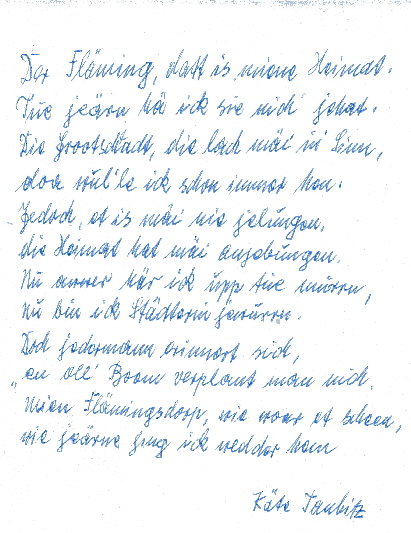 Der Fläming, datt is miene Heimat.
Tue jeärn hä ick sie nich jehat.
Die Grootstadt, die lach mäi in' Sinn,
doa wull'le ick schon immer hen.
Jedoch, et is mäi nie jelungen,
die Heimat hat mäi anjebungen.
Nu awwer här ick upp tue murrn,
Nu bin ick Städterin jewurrn.
Doch jedermann erinnert sich,
"en oll' Boom verplant man nich.
Mien Flämingsdorp, wie woar et scheen,
wie jeärne jing ick wedder hen
Käte Taubitz